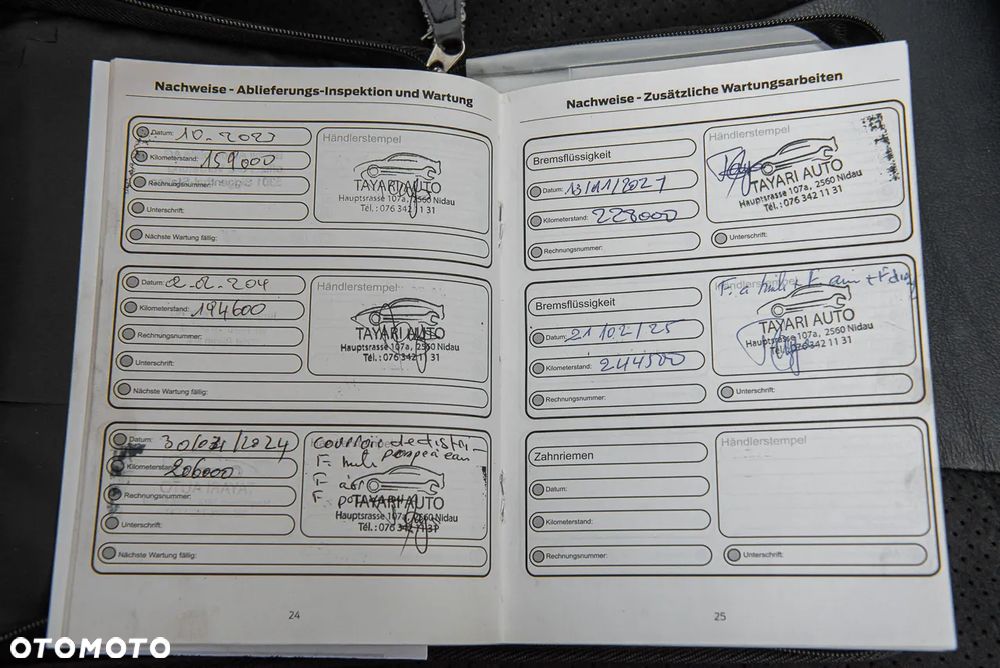 Nachweise - Ablieferungs-Inspektion und Wartung
Datum: 10.2023
Kilometerstand: 159000
Rechnungsnummer:
Unterschrift:
Nächste Wartung fällig:
Händlerstempel
TAYARI AUTO
Hauptsrasse 107a, 2560 Nidau
Tél.: 076 342 11 31
Datum:
Kilometerstand: 194600
Rechnungsnummer:
Unterschrift:
Nächste Wartung fällig:
Händlerstempel
TAYARI AUTO
Hauptsrasse 107a, 2560 Nidau
Tél.: 076 342 11 31
Datum: 30/04/2024
Kilometerstand: 206000
Rechnungsnummer:
Unterschrift:
Nächste Wartung fällig:
courroie de distri
F.
F
F.
TAYARI AUTO
Hauptsrasse 107a, 2560 Nidau
Tél.: 076 342 11 31
24
Nachweise - Zusätzliche Wartungsarbeiten
Bremsflüssigkeit
Datum:
Kilometerstand: 228000
Rechnungsnummer:
Händlerstempel
TAYARI AUTO
Hauptsrasse 107a, 2560 Nidau
Tél.: 076 342 11 31
Unterschrift:
Bremsflüssigkeit
Datum: 21/02/25
Kilometerstand: 244500
Rechnungsnummer:
Händlerstempel
TAYARI AUTO
Hauptsrasse 107a, 2560 Nidau
Tél.: 076 342 11 31
Unterschrift:
Zahnriemen
Datum:
Kilometerstand:
Rechnungsnummer:
Händlerstempel
Unterschrift:
25
OTOMOTO